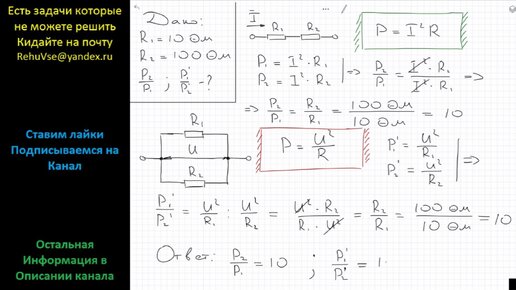 Есть задачи которые
не можете решить
Кидайте на почту
RehuVse@yandex.ru
Ставим лайки
Подписываемся на
Канал
Остальная
Информация в
Описании канала
Дано:
R₁ = 10 Ом
R₂ = 100 Ом
P₂/P₁ ; P₁'/P₂' - ?
I R₁ R₂
P = I² R
P₁ = I² · R₁
P₂ = I² · R₂
=> P₂/P₁ = I² · R₂ / I² · R₁ =>
=> P₂/P₁ = R₂/R₁ = 100 Ом / 10 Ом = 10
R₁
U
R₂
P = U²/R
P₁' = U²/R₁
P₂' = U²/R₂
=>
P₁'/P₂' = U²/R₁ : U²/R₂ = U² · R₂ / R₁ · U² = R₂/R₁ = 100 Ом / 10 Ом = 10
Ответ: P₂/P₁ = 10 ; P₁'/P₂' = 1